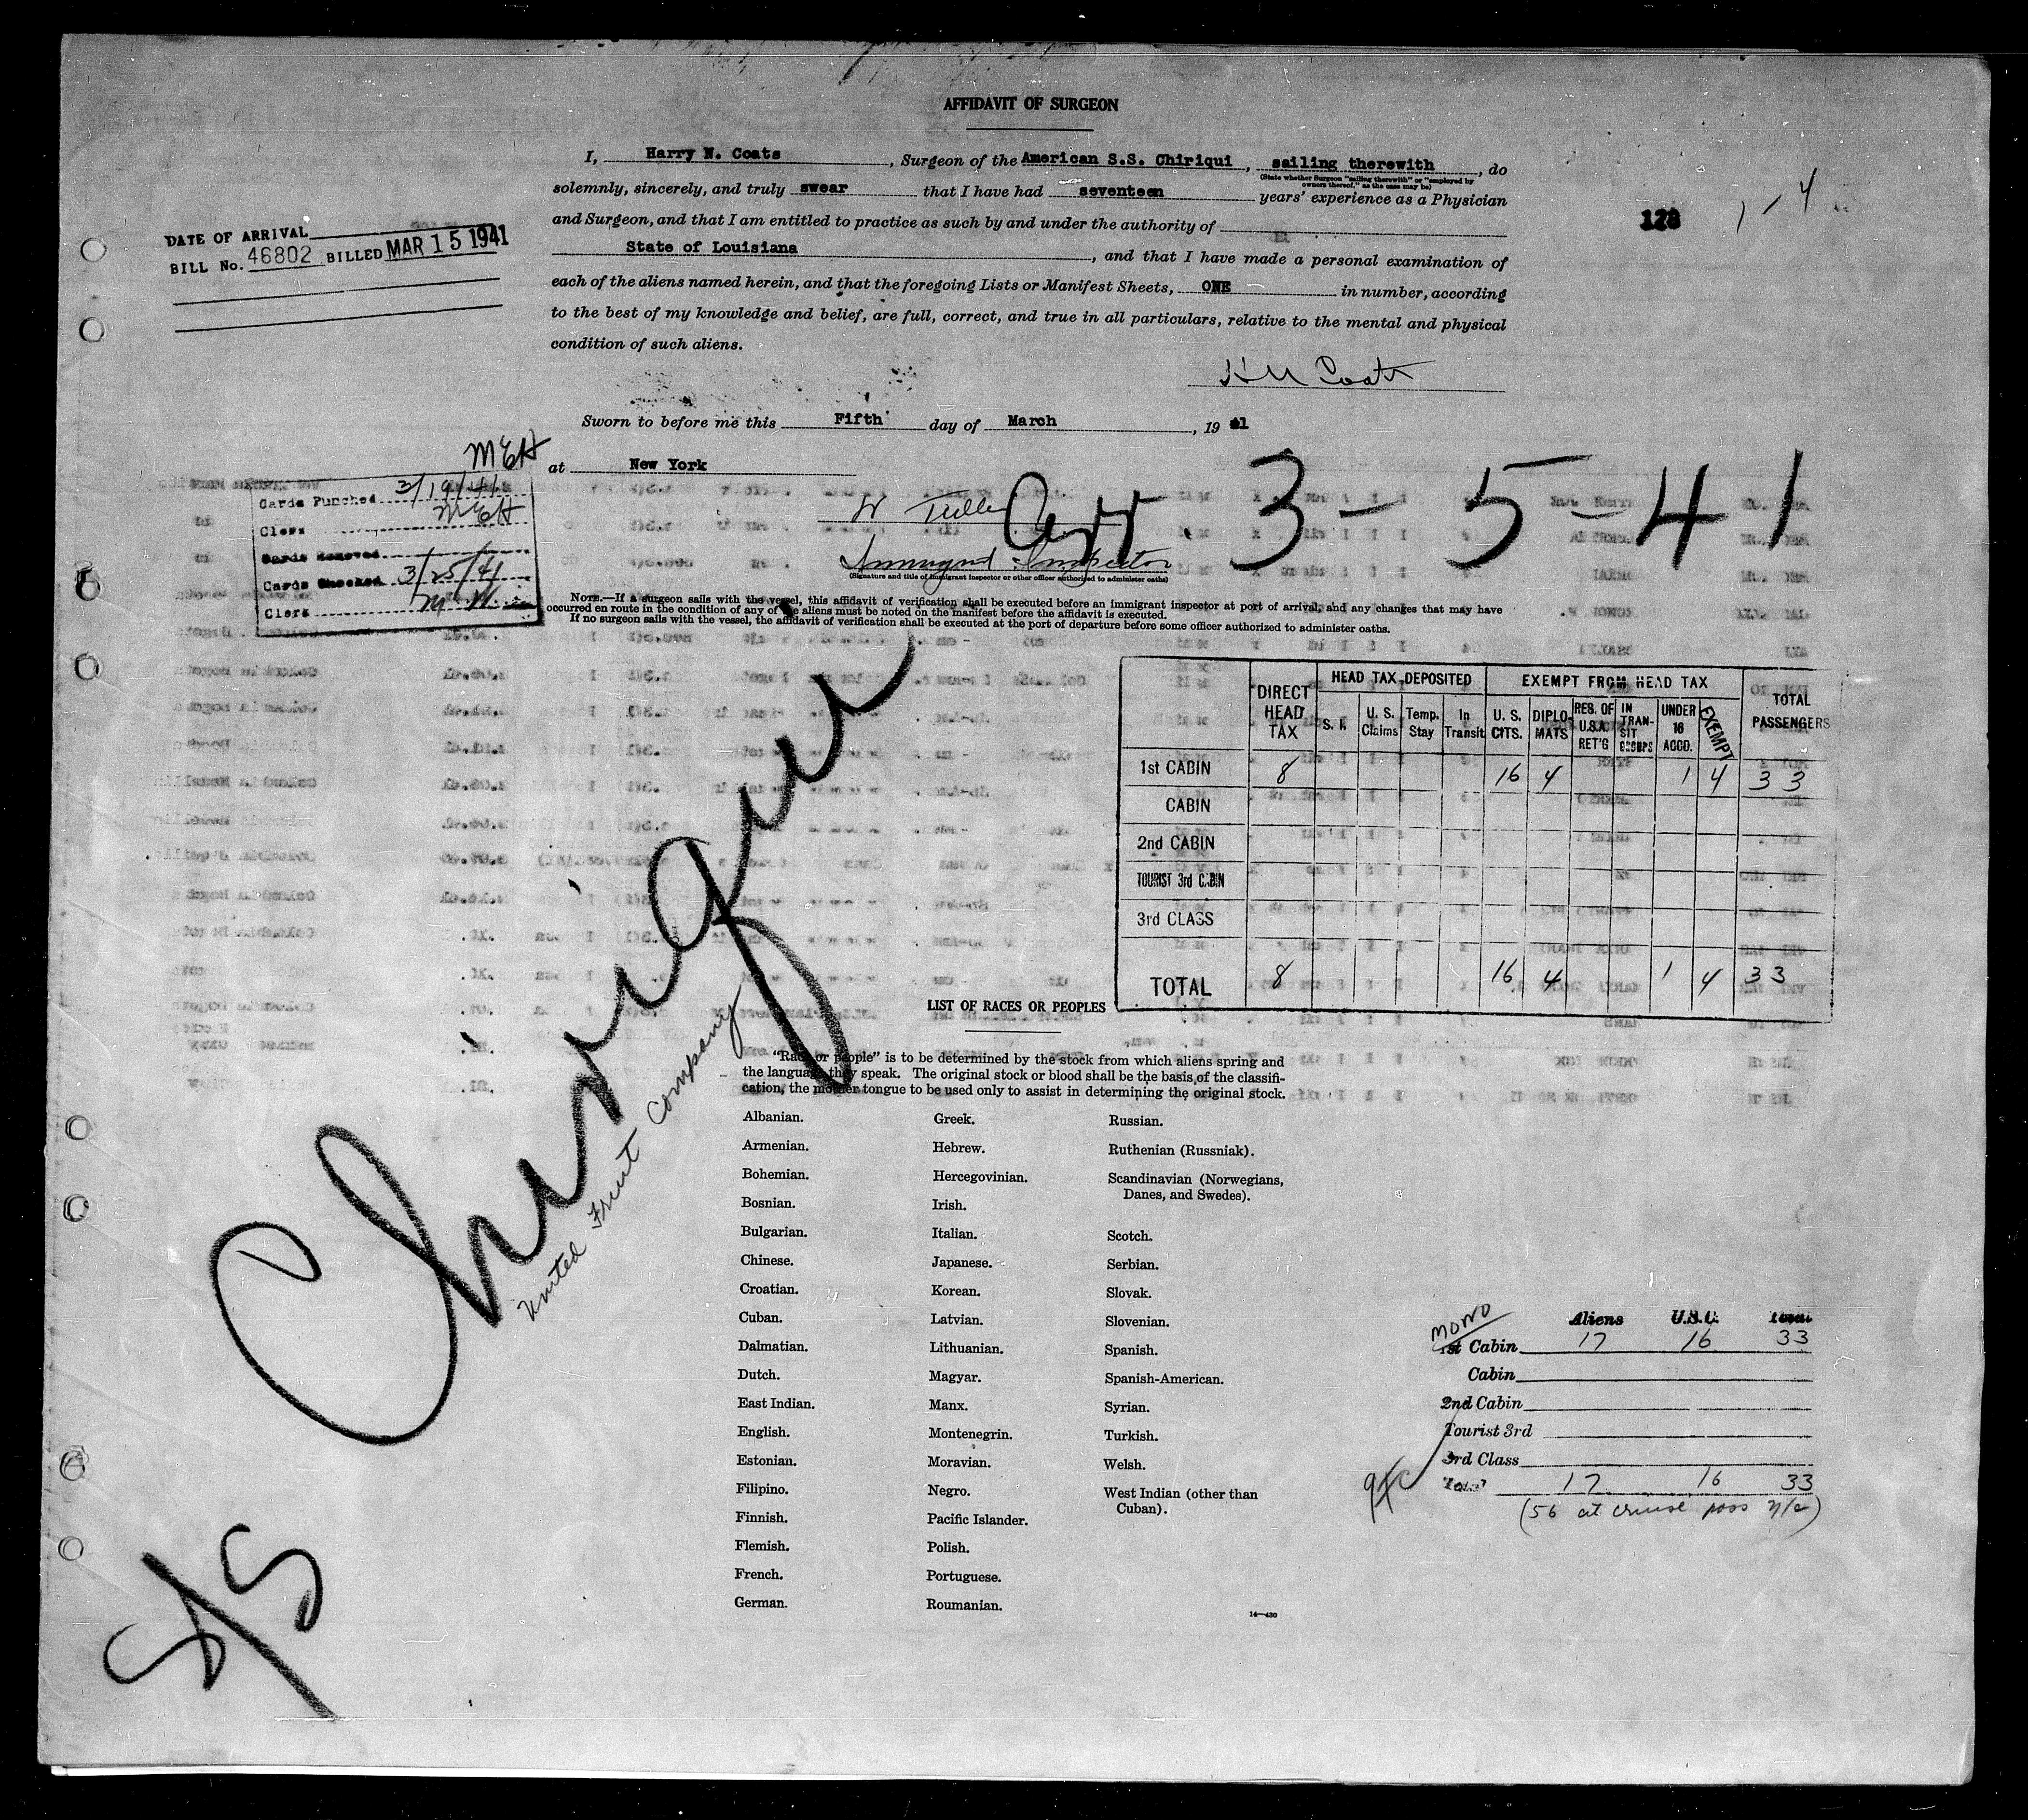 AFFIDAVIT OF SURGEON
I, Harry N. Coats, Surgeon of the American S.S. Chiriqui, sailing therewith, do
(State whether Surgeon "sailing therewith" or "employed by owners thereof," as the case may be)
solemnly, sincerely, and truly swear that I have had seventeen years' experience as a Physician
and Surgeon, and that I am entitled to practice as such by and under the authority of
State of Louisiana, and that I have made a personal examination of
each of the aliens named herein, and that the foregoing Lists or Manifest Sheets, ONE in number, according
to the best of my knowledge and belief, are full, correct, and true in all particulars, relative to the mental and physical
condition of such aliens.
H N Coats
Sworn to before me this Fifth day of March, 19 41
at New York
Immigrant Inspector
(Signature and title of immigrant inspector or other officer authorized to administer oaths)
NOTE.—If a surgeon sails with the vessel, this affidavit of verification shall be executed before an immigrant inspector at port of arrival, and any changes that may have
occurred en route in the condition of any of the aliens must be noted on the manifest before the affidavit is executed.
If no surgeon sails with the vessel, the affidavit of verification shall be executed at the port of departure before some officer authorized to administer oaths.
DATE OF ARRIVAL
BILL No. 46802 BILLED MAR 15 1941
128
1-4
Arr 3-5-41
MEH
Cards Punched 3/19/41
Clerk MEH
Cards Removed
Cards Checked 3/25/41
Clerk M.H.
DIRECT HEAD TAX HEAD TAX DEPOSITED EXEMPT FROM HEAD TAX TOTAL PASSENGERS
S. I. U. S. Claims Temp. Stay In Transit U. S. CITS. DIPLOMATS RES. OF U.S.A. RET'G IN TRANSIT GROUPS UNDER 16 ACCD. EXEMPT
1st CABIN 8 16 4 1 4 33
CABIN
2nd CABIN
TOURIST 3rd CABIN
3rd CLASS
TOTAL 8 16 4 1 4 33
Chiriqui
United Fruit Company
S/S
LIST OF RACES OR PEOPLES
"Race or people" is to be determined by the stock from which aliens spring and
the language they speak. The original stock or blood shall be the basis of the classifi-
cation, the mother tongue to be used only to assist in determining the original stock.
Albanian.
Armenian.
Bohemian.
Bosnian.
Bulgarian.
Chinese.
Croatian.
Cuban.
Dalmatian.
Dutch.
East Indian.
English.
Estonian.
Filipino.
Finnish.
Flemish.
French.
German.
Greek.
Hebrew.
Hercegovinian.
Irish.
Italian.
Japanese.
Korean.
Latvian.
Lithuanian.
Magyar.
Manx.
Montenegrin.
Moravian.
Negro.
Pacific Islander.
Polish.
Portuguese.
Roumanian.
Russian.
Ruthenian (Russniak).
Scandinavian (Norwegians,
Danes, and Swedes).
Scotch.
Serbian.
Slovak.
Slovenian.
Spanish.
Spanish-American.
Syrian.
Turkish.
Welsh.
West Indian (other than
Cuban).
14—430
MONO
Aliens U.S.C. Total
1st Cabin 17 16 33
Cabin
2nd Cabin
Tourist 3rd
3rd Class
Total 17 16 33
(56 at cruise pass n/c)